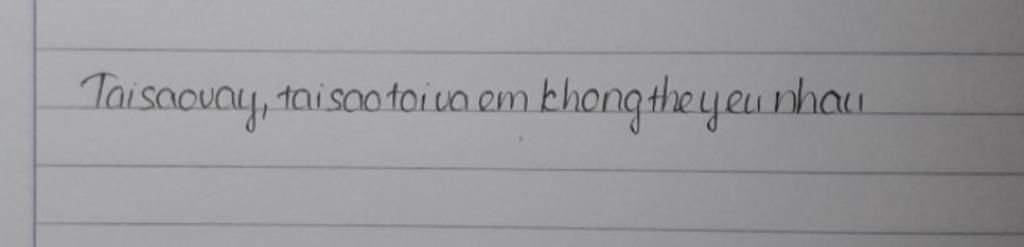 Taisaovay, taisao toi va em khong the yeu nhau